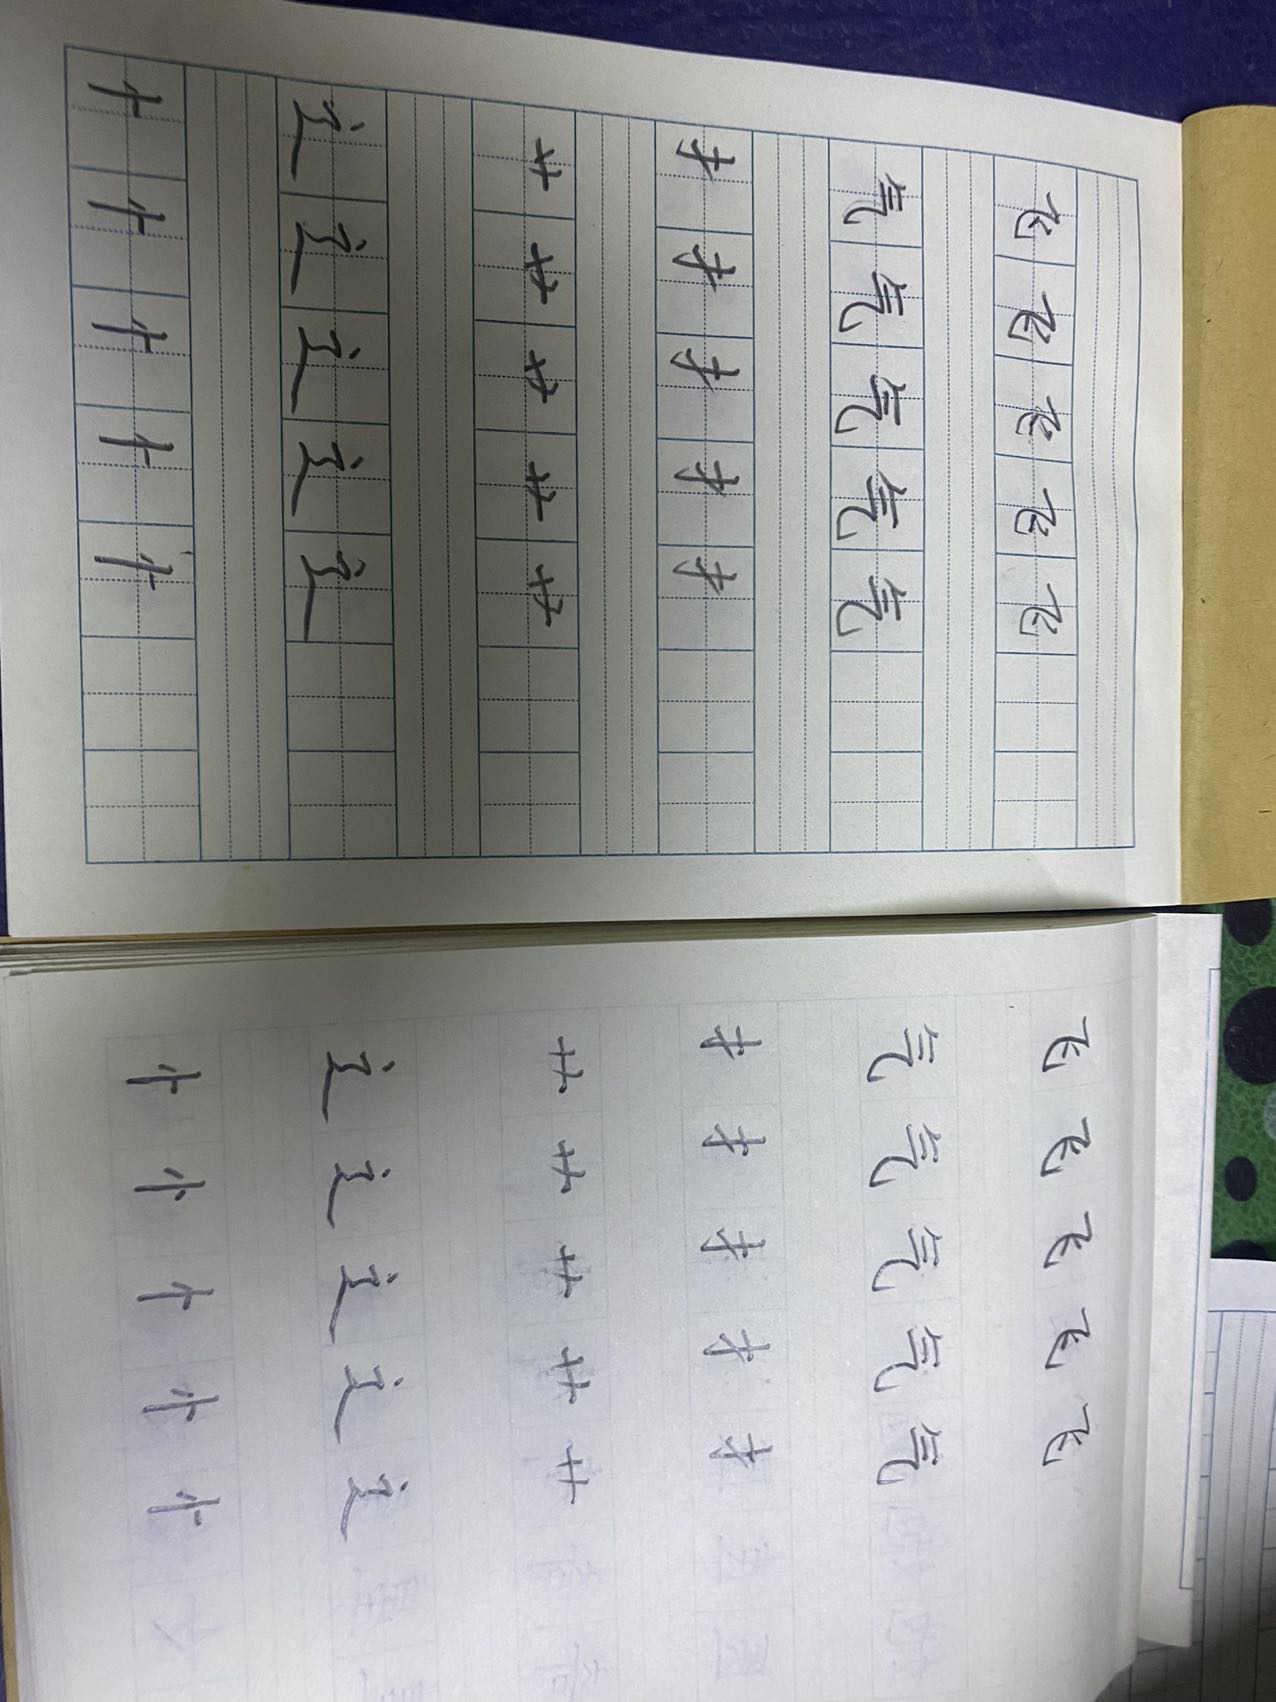 飞飞飞飞飞
气气气气气
扌扌扌扌扌
艹艹艹艹艹
辶辶辶辶辶
忄忄忄忄忄
飞飞飞飞飞
气气气气气
扌扌扌扌扌
艹艹艹艹艹
辶辶辶辶辶
忄忄忄忄忄